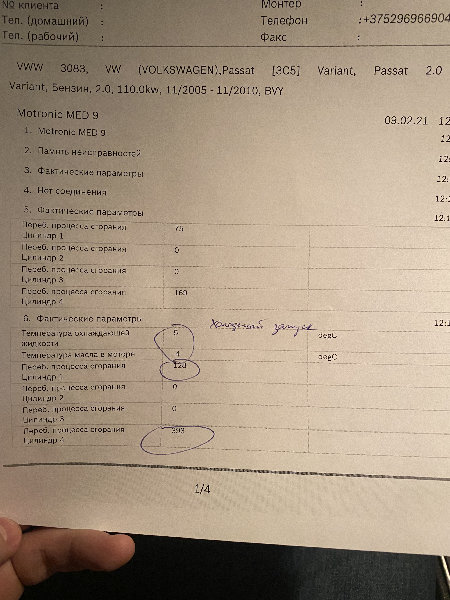 № клиента :
Монтер :
Тел. (домашний) :
Телефон :+375296966904
Тел. (рабочий) :
Факс :
VWW 3083, VW (VOLKSWAGEN),Passat [3C5] Variant, Passat 2.0
Variant, Бензин, 2.0, 110.0kw, 11/2005 - 11/2010, BVY
Motronic MED 9
09.02.21 12
1. Motronic MED 9
2. Память неисправностей
3. Фактические параметры
4. Нет соединения
5. Фактические параметры
Переб. процесса сгорания
Цилиндр 1
Переб. процесса сгорания 0
Цилиндр 2
Переб. процесса сгорания 0
Цилиндр 3
Переб. процесса сгорания 160
Цилиндр 4
6. Фактические параметры
Холодный запуск
Температура охлаждающей 5 degC
жидкости
Температура масла в моторе degC
Переб. процесса сгорания 120
Цилиндр 1
Переб. процесса сгорания 0
Цилиндр 2
Переб. процесса сгорания 0
Цилиндр 3
Переб. процесса сгорания 393
Цилиндр 4
1/4